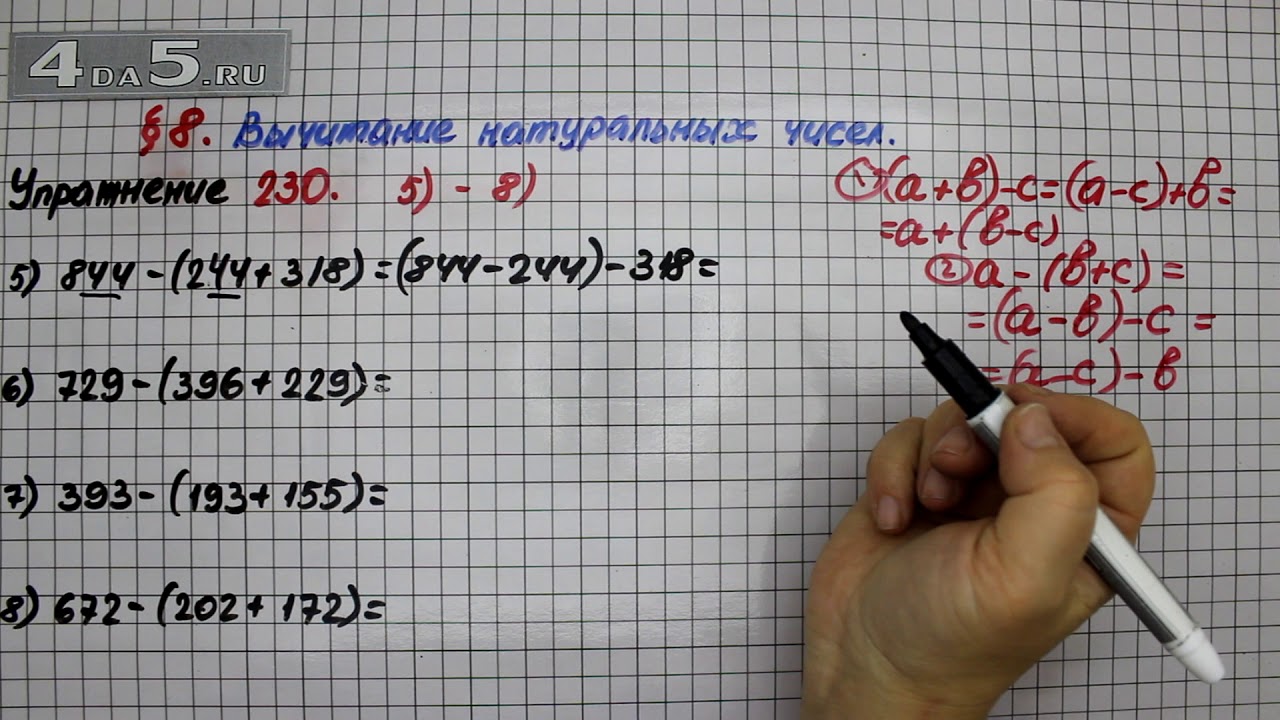 4DA5.RU
§ 8. Вычитание натуральных чисел.
Упражнение 230. 5) - 8)
5) 844 - (244 + 318) = (844 - 244) - 318 =
6) 729 - (396 + 229) =
7) 393 - (193 + 155) =
8) 672 - (202 + 172) =
① (a + в) - c = (a - c) + в =
= a + (в - c)
② a - (в + c) =
= (a - в) - c =
= (a - c) - в